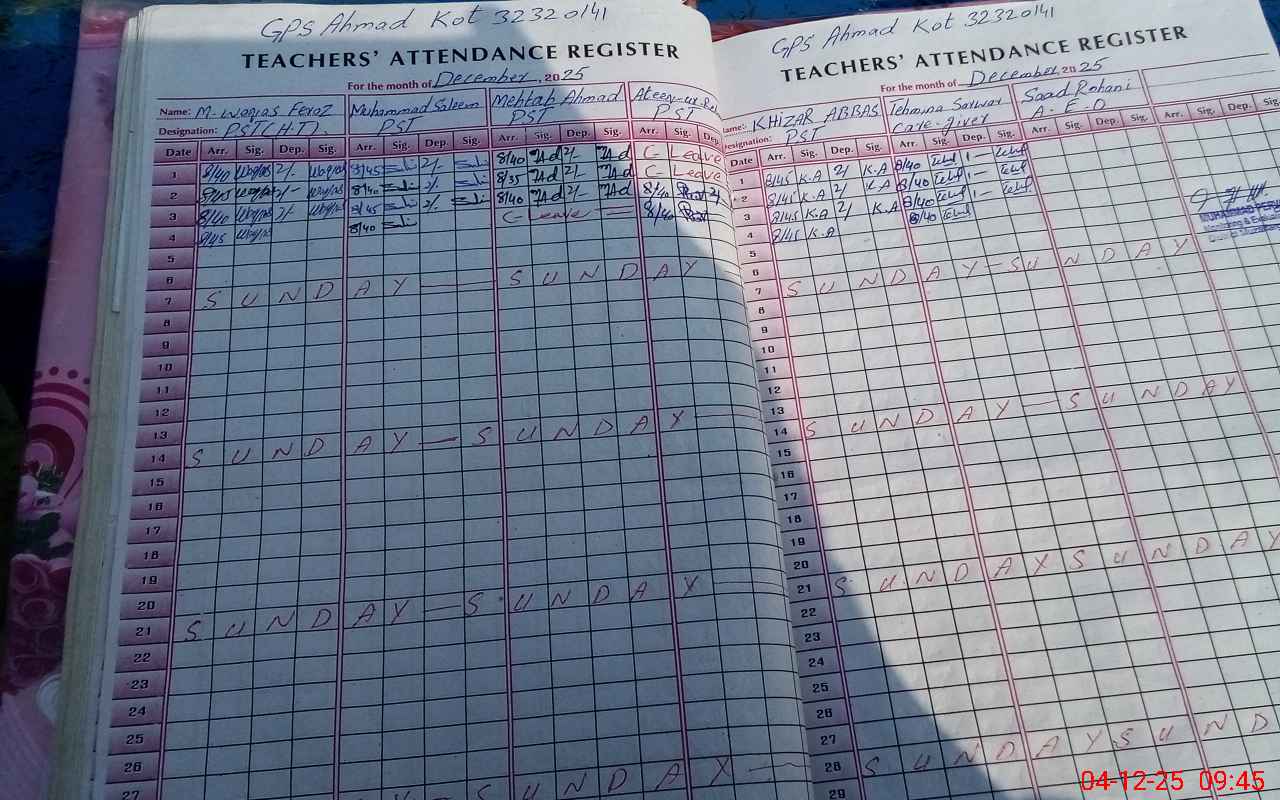 GPS Ahmad Kot 32320141
TEACHERS' ATTENDANCE REGISTER
For the month of December, 2025
Name: M. Waqas Feroz Muhammad Saleem Mehtab Ahmad Ateeq-ur-Re
Designation: PST(H.T). PST PST PST
Date Arr. Sig. Dep. Sig. Arr. Sig. Dep. Sig. Arr. Sig. Dep. Sig. Arr. Sig. Dep
1 8/40 Waqas 2/- Waqas 8/45 2/- 8/40 2/- C- Leave
2 8/45 Waqas 2/- Waqas 8/40 2/- 8/35 2/- C- Leave
3 8/40 Waqas 2/- Waqas 8/45 2/- 8/40 2/- 8/40 2/
4 8/45 Waqas 8/40 C- Leave 8/40
5
6
7 SUNDAY — SUNDAY
8
9
10
11
12
13
14 SUNDAY — SUNDAY
15
16
17
18
19
20
21 SUNDAY — SUNDAY
22
23
24
25
26
27 SUNDAY
GPS Ahmad Kot 32320141
TEACHERS' ATTENDANCE REGISTER
For the month of December, 2025
ame: KHIZAR ABBAS Tehmina Sarwar Saad Rohani
esignation: PST Care-giver A. E. O
Date Arr. Sig. Dep. Sig. Arr. Sig. Dep. Sig. Arr. Sig. Dep. Sig. Arr. Sig. Dep. Sig.
1 8/45 K.A 2/ K.A 8/40 1-
2 8/45 K.A 2/ K.A 8/40 1-
3 8/45 K.A 2/ K.A 8/40 1-
4 8/45 K.A 8/40
MUHAMMAD
Monitoring & Evaluat
5
6
7 SUNDAY — SUNDAY
8
9
10
11
12
13
14 SUNDAY — SUNDAY
15
16
17
18
19
20
21 SUNDAY SUNDAY
22
23
24
25
26
27
28 SUNDAY SUND
29
04-12-25 09:45